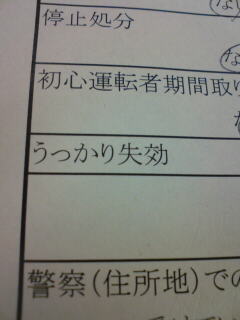 停止処分
な
初心運転者期間取り
うっかり失効
警察(住所地)での